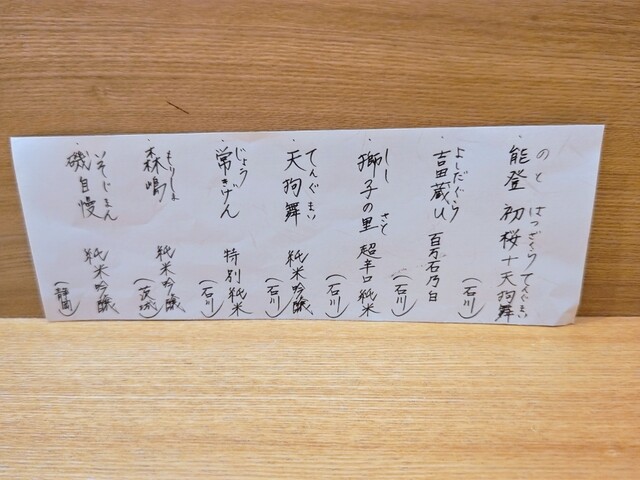 ・能登 初桜+天狗舞
のと はつざくら てんぐまい
(石川)
・吉田蔵u 百万石乃白
よしだぐら
(石川)
・獅子の里 超辛口純米
しし さと
(石川)
・天狗舞 純米吟醸
てんぐまい
(石川)
・常きげん 特別純米
じょう
(石川)
・森嶋 純米吟醸
もりしま
(茨城)
・磯自慢 純米吟醸
いそじまん
(静岡)